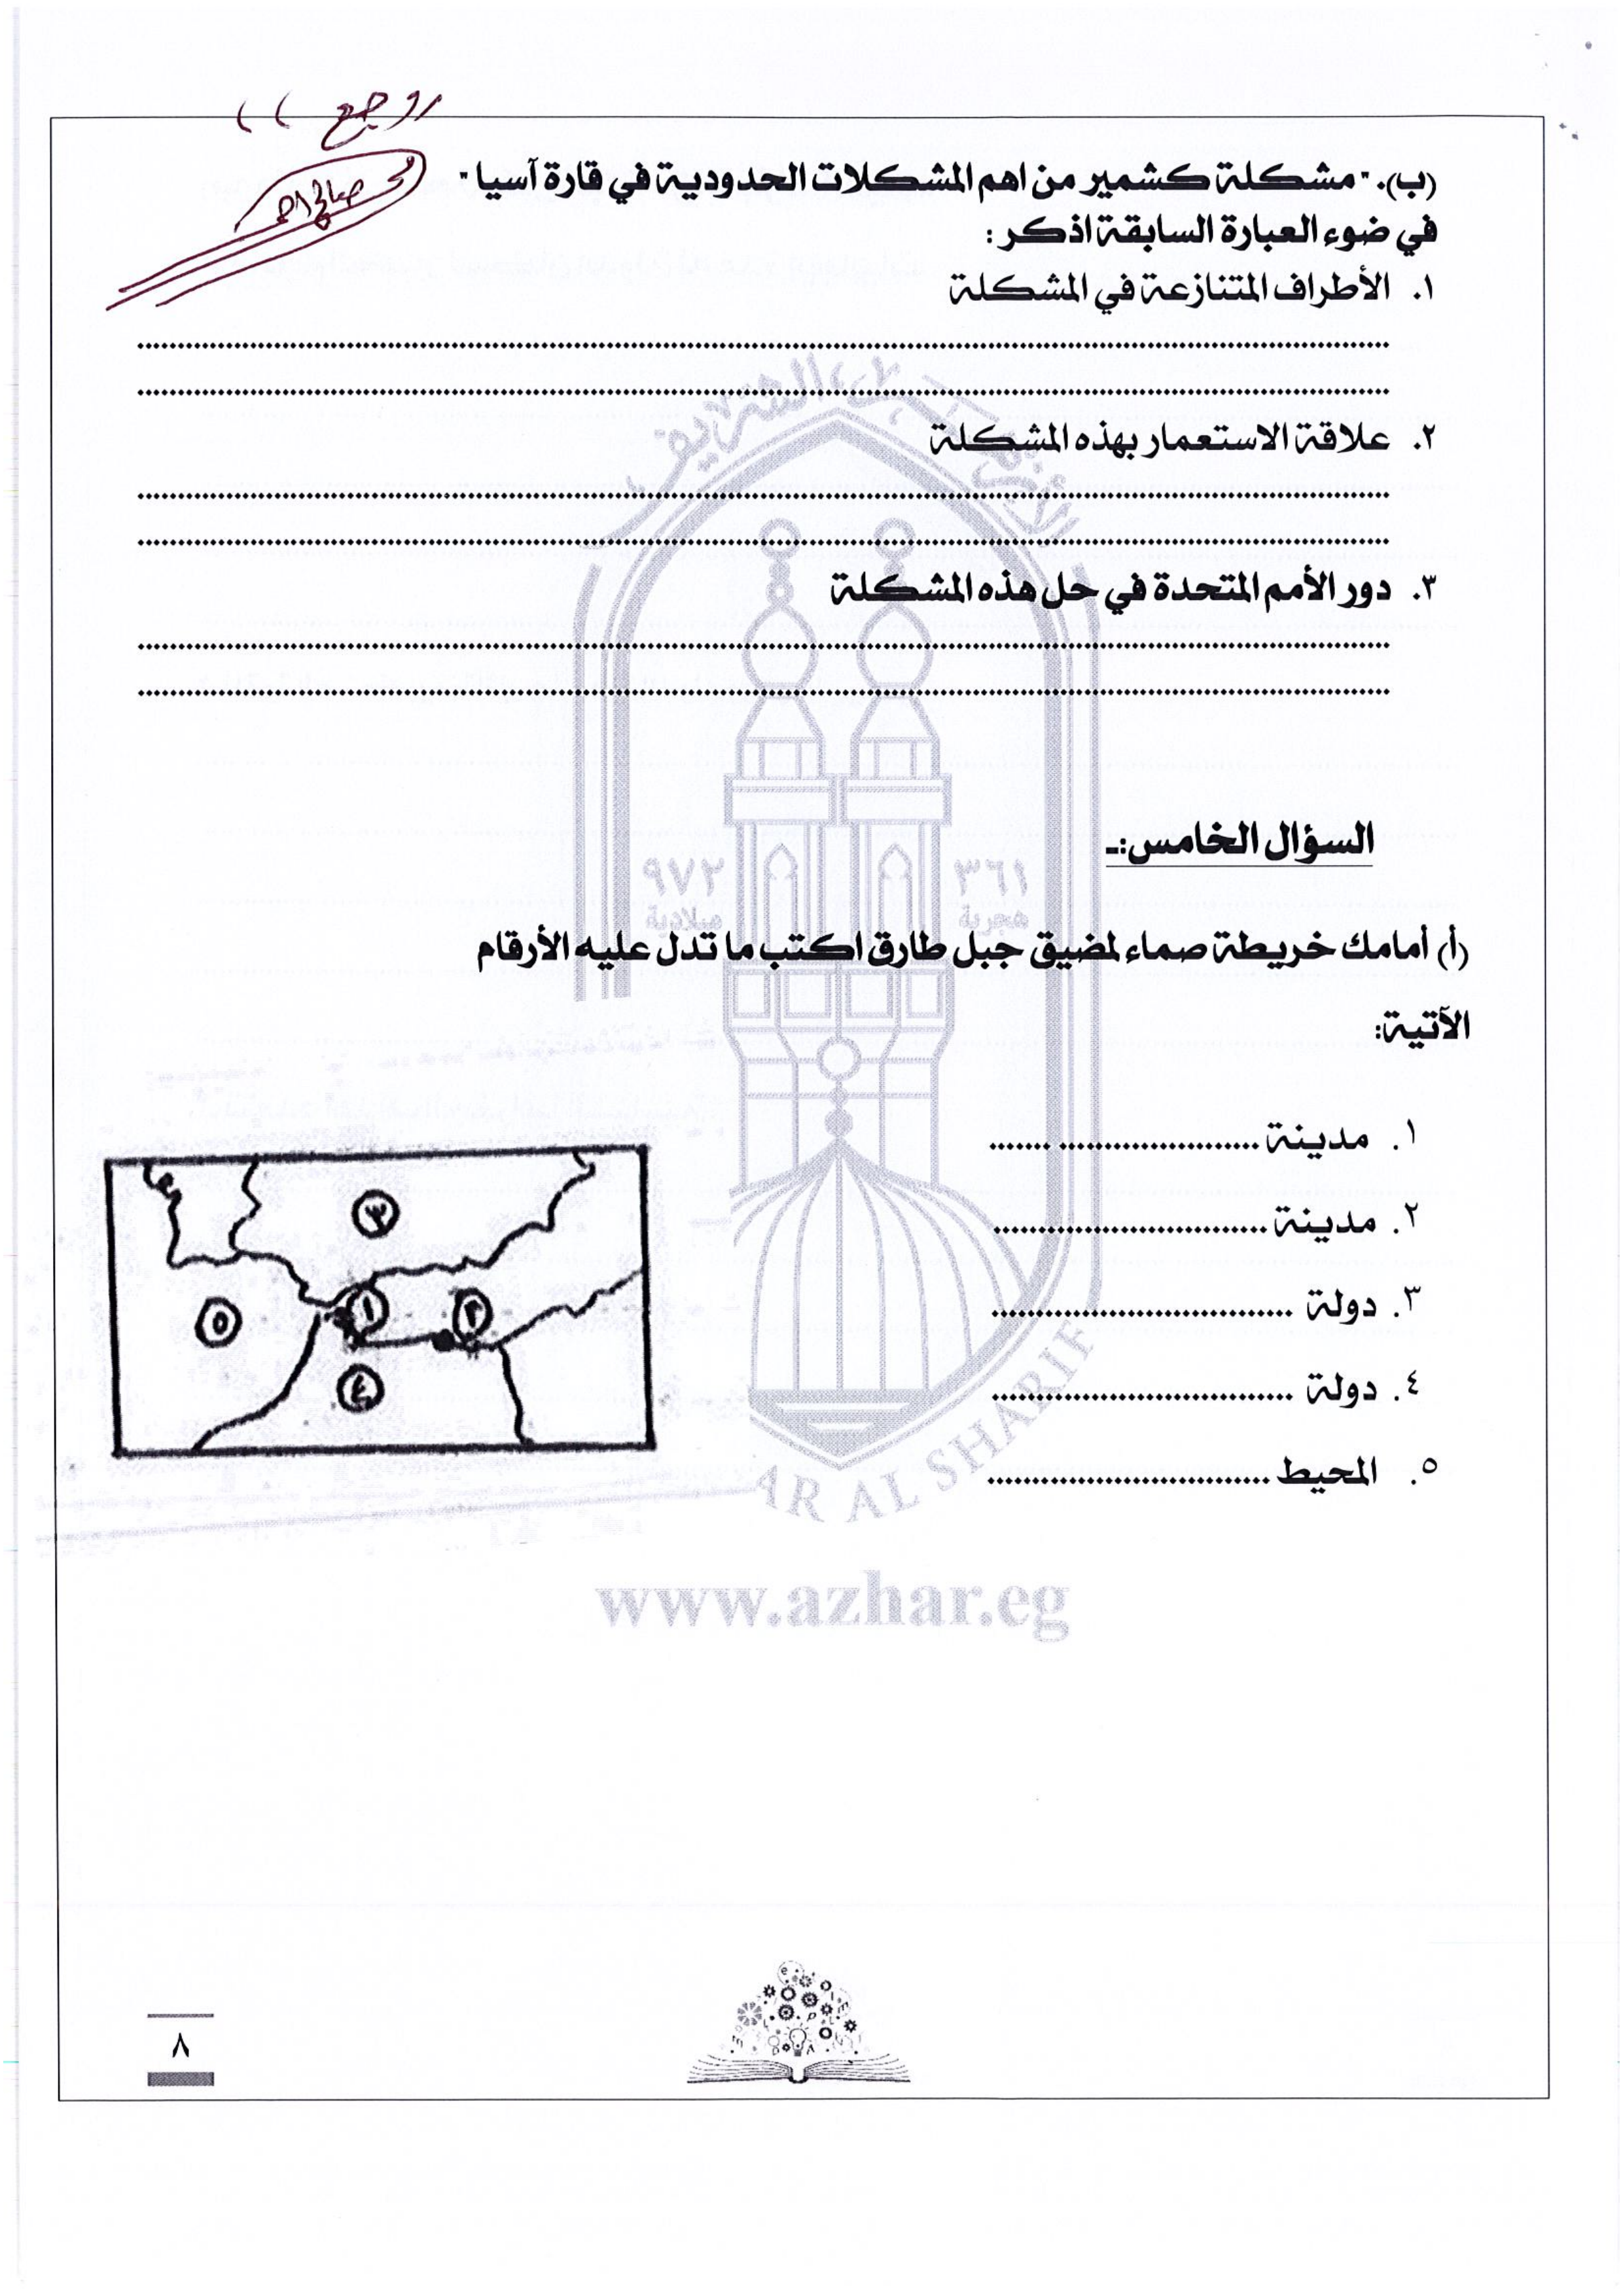 روجع ))
محمد صالح احمد
(ب). "مشكلة كشمير من اهم المشكلات الحدودية في قارة آسيا "
في ضوء العبارة السابقة اذكر :
١. الأطراف المتنازعة في المشكلة
٢. علاقة الاستعمار بهذه المشكلة
٣. دور الأمم المتحدة في حل هذه المشكلة
السؤال الخامس:ـ
٣٦١ ٩٧٢
هجرية ميلادية
(أ) أمامك خريطة صماء لمضيق جبل طارق اكتب ما تدل عليه الأرقام
الآتية:
١. مدينة ..............................
٢. مدينة ..............................
٣. دولة ..............................
٤. دولة ..............................
٥. المحيط ..............................
٣
١ ٢
٥
٤
الأزهر الشريف
AR AL SHARIF
www.azhar.eg
٨